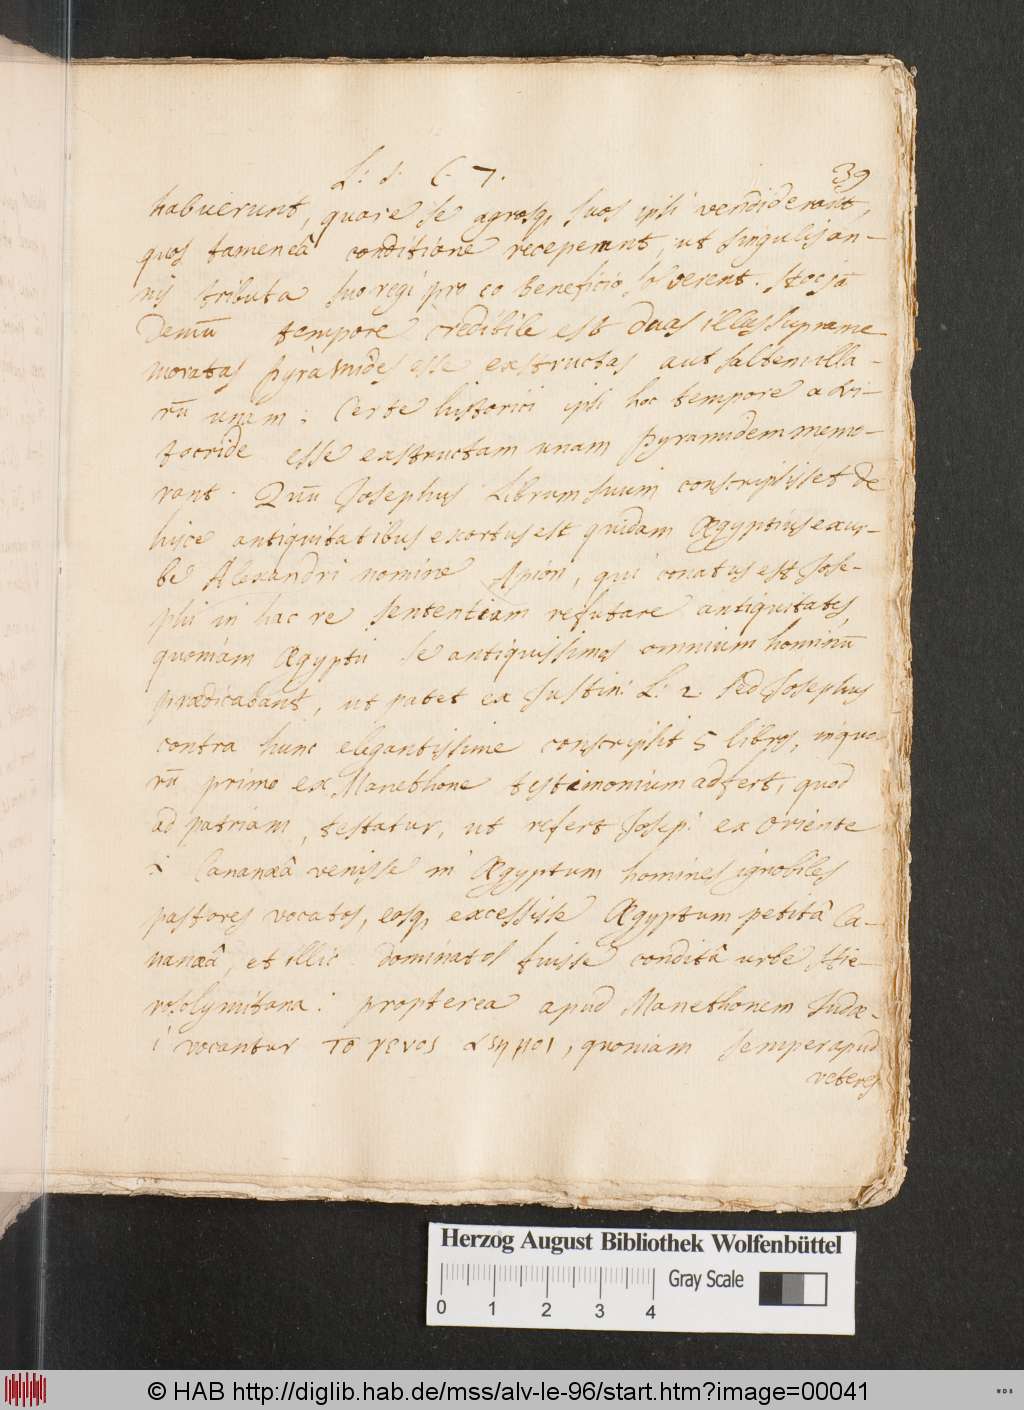 L: 1: C. 7. 39
habuerunt, quare se agrosq, suos ipsi vendiderant,
quos tamen eâ conditione receperunt, ut singulis an-
nis tributa suo regi pro eo beneficio solverent. Hoc jā
demū tempore credibile est duas illas supreme
moratas pyramides esse exstructas aut saltem illa-
rū unam: Certe historici ipsi hoc tempore a Ni-
tocride esse exstructam unam pyramidem memo-
rant. Quū Josephus Librum suum conscripsisset de
hisce antiquitatibus exortus est quidam Ægyptius ex ur-
be Alexandri nomine Apion, qui conatus est Jose-
phi in hac re sententiam refutare antiquitates,
quoniam Ægyptii se antiquissimos omnium hominū
prædicabant, ut patet ex Justin: L: 2. Sed Josephus
contra hunc elegantissime conscripsit 5 libros, in quo
rū primo ex Manethone testimonium adfert, quod
ad patriam, testatur, ut refert Josep: ex Oriente
i Cananæâ venisse in Ægyptum homines ignobiles
pastores vocatos, eosq, excessisse Ægyptum petitâ Ca-
nanæâ, et illic dominatos fuisse conditâ urbe Hie-
rosolymitana: propterea apud Manethonem Judæ-
i vocantur το γενος ασημοι, quoniam semper apud
veteres
Herzog August Bibliothek Wolfenbüttel
0 1 2 3 4 Gray Scale
© HAB http://diglib.hab.de/mss/alv-le-96/start.htm?image=00041